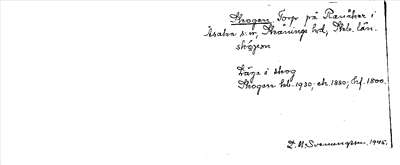 Skogen, Torp på Ranåker i
Åsaka s:n, Skånings hd, Skb. län.
skọgən
Läge i skog
Skogen hb. 1930, ek. 1880, lrf. 1800.
D.U. Svenungsson. 1945.